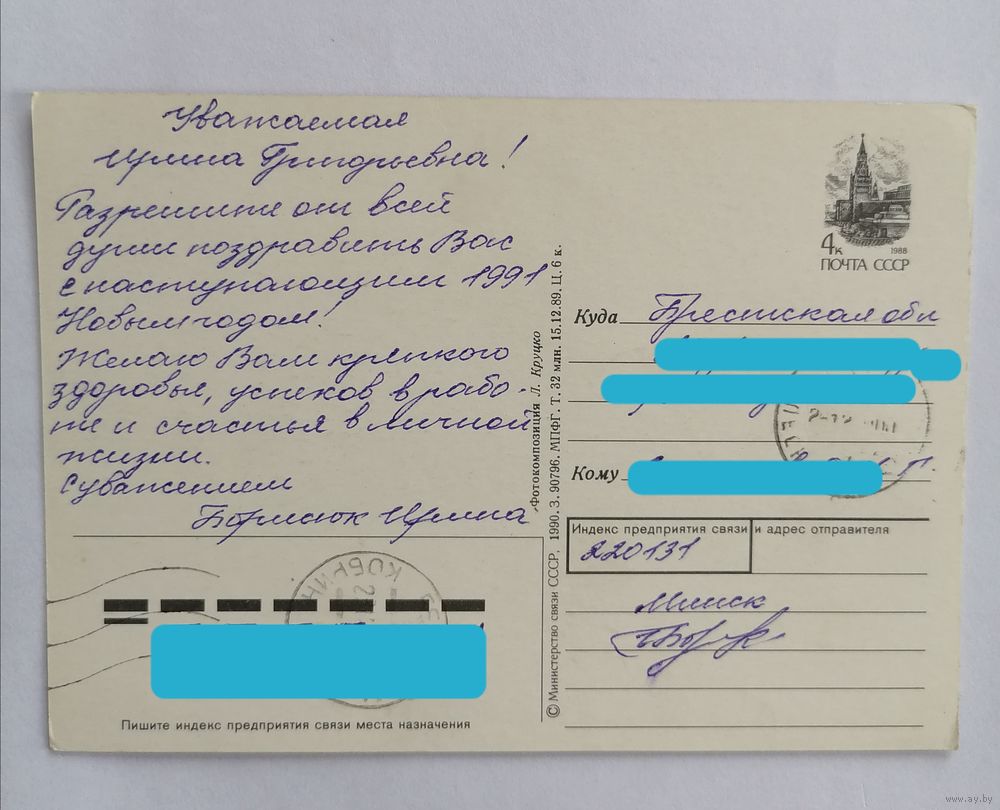 Уважаемая
Ирина Григорьевна!
Разрешите от всей
души поздравить Вас
с наступающим 1991
Новым годом!
Желаю Вам крепкого
здоровья, успехов в рабо-
те и счастья в личной
жизни.
С уважением
Ирина
Пишите индекс предприятия связи места назначения
КОБРИН
© Министерство связи СССР, 1990. З. 90796. МПФГ. Т. 32 млн. 15.12.89. Ц. 6 к.
Фотокомпозиция Л. Круцко
4к
1988
ПОЧТА СССР
Куда Брестская обл
Кому
Индекс предприятия связи и адрес отправителя
220131
Минск
www.ay.by